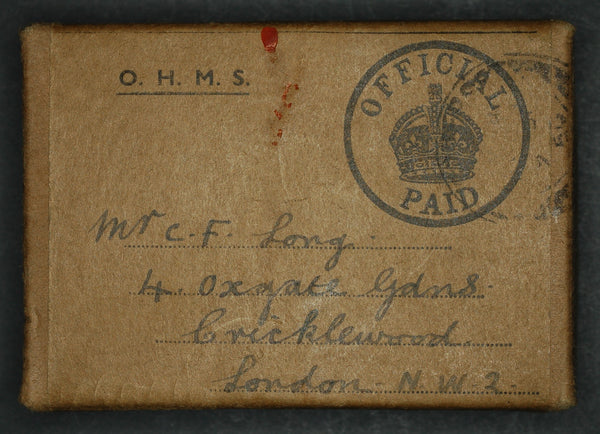 O. H. M. S.
OFFICIAL
PAID
Mr C. F. Long.
4. Oxgate Gdns.
Cricklewood
London. N. W. 2.